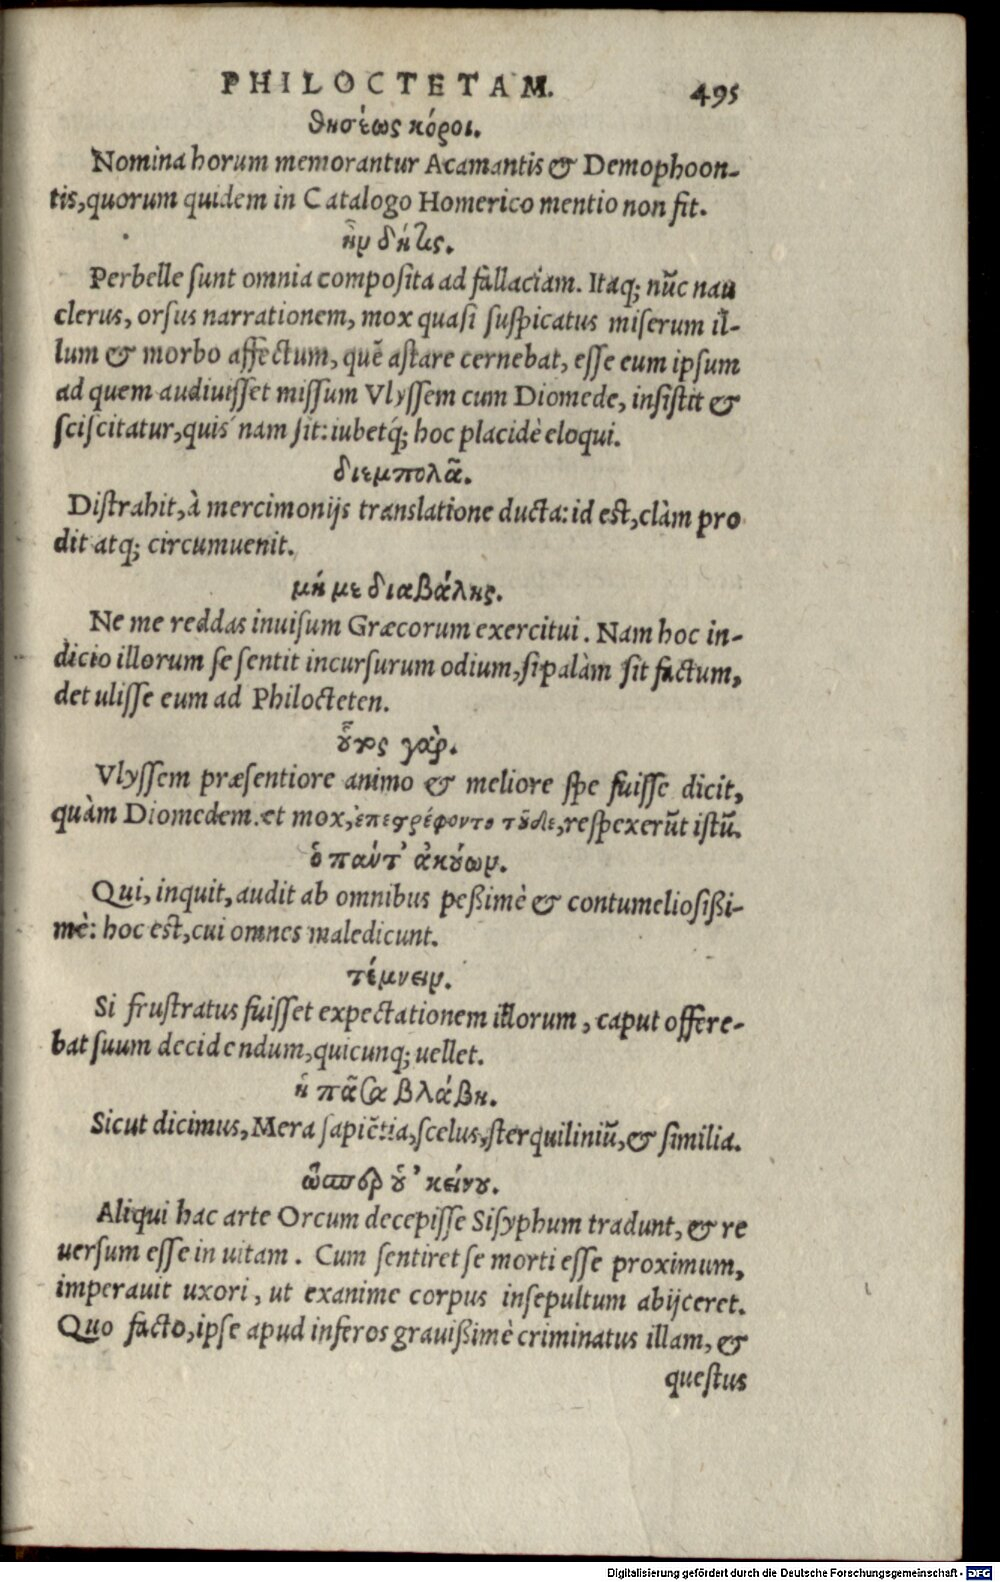 PHILOCTETAM. 495
θησέως κόροι.
Nomina horum memorantur Acamantis & Demophoon-
tis, quorum quidem in Catalogo Homerico mentio non fit.
ἢν δήτις.
Perbelle sunt omnia composita ad fallaciam. Itaq; nũc nau
clerus, orsus narrationem, mox quasi suspicatus miserum il-
lum & morbo affectum, quẽ astare cernebat, esse eum ipsum
ad quem audiuisset missum Vlyssem cum Diomede, insistit &
sciscitatur, quis nam sit: iubetq́; hoc placidè eloqui.
διεμπολᾶ.
Distrahit, à mercimonijs translatione ducta: id est, clàm pro
dit atq; circumuenit.
μή με διαβάλης.
Ne me reddas inuisum Græcorum exercitui. Nam hoc in-
dicio illorum se sentit incursurum odium, si palàm sit factum,
detulisse eum ad Philocteten.
οὗτος γὰρ.
Vlyssem præsentiore animo & meliore spe fuisse dicit,
quàm Diomedem. et mox, ἐπεστρέφοντο τοῦδε, respexerũt istũ.
ὁ πάντ' ἀκούων.
Qui, inquit, audit ab omnibus peßimè & contumeliosißi-
mè: hoc est, cui omnes maledicunt.
τέμνειν.
Si frustratus fuisset expectationem illorum, caput offere-
bat suum decidendum, quicunq; uellet.
ἡ πᾶσα βλάβη.
Sicut dicimus, Mera sapiẽtia, scelus, sterquiliniũ, & similia.
ὥσπερ οὑ' κείνου.
Aliqui hac arte Orcum decepisse Sisyphum tradunt, & re
uersum esse in uitam. Cum sentiret se morti esse proximum,
imperauit uxori, ut exanime corpus insepultum abijceret.
Quo facto, ipse apud inferos grauißimè criminatus illam, &
questus
Digitalisierung gefördert durch die Deutsche Forschungsgemeinschaft - DFG